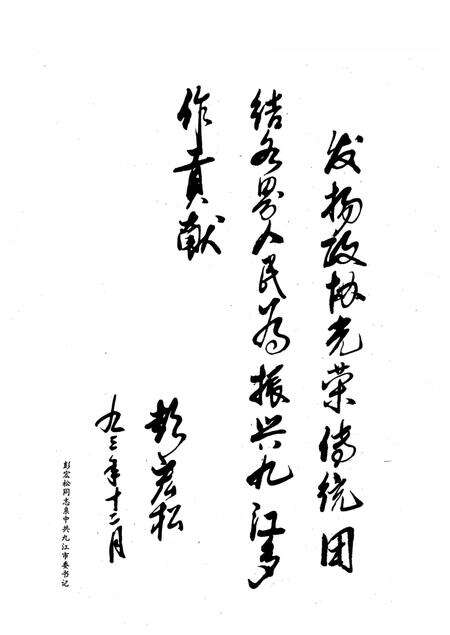 发扬政协光荣传统团
结各界人民为振兴九江多
作贡献
彭宏松
九三年十二月
彭宏松同志系中共九江市委书记